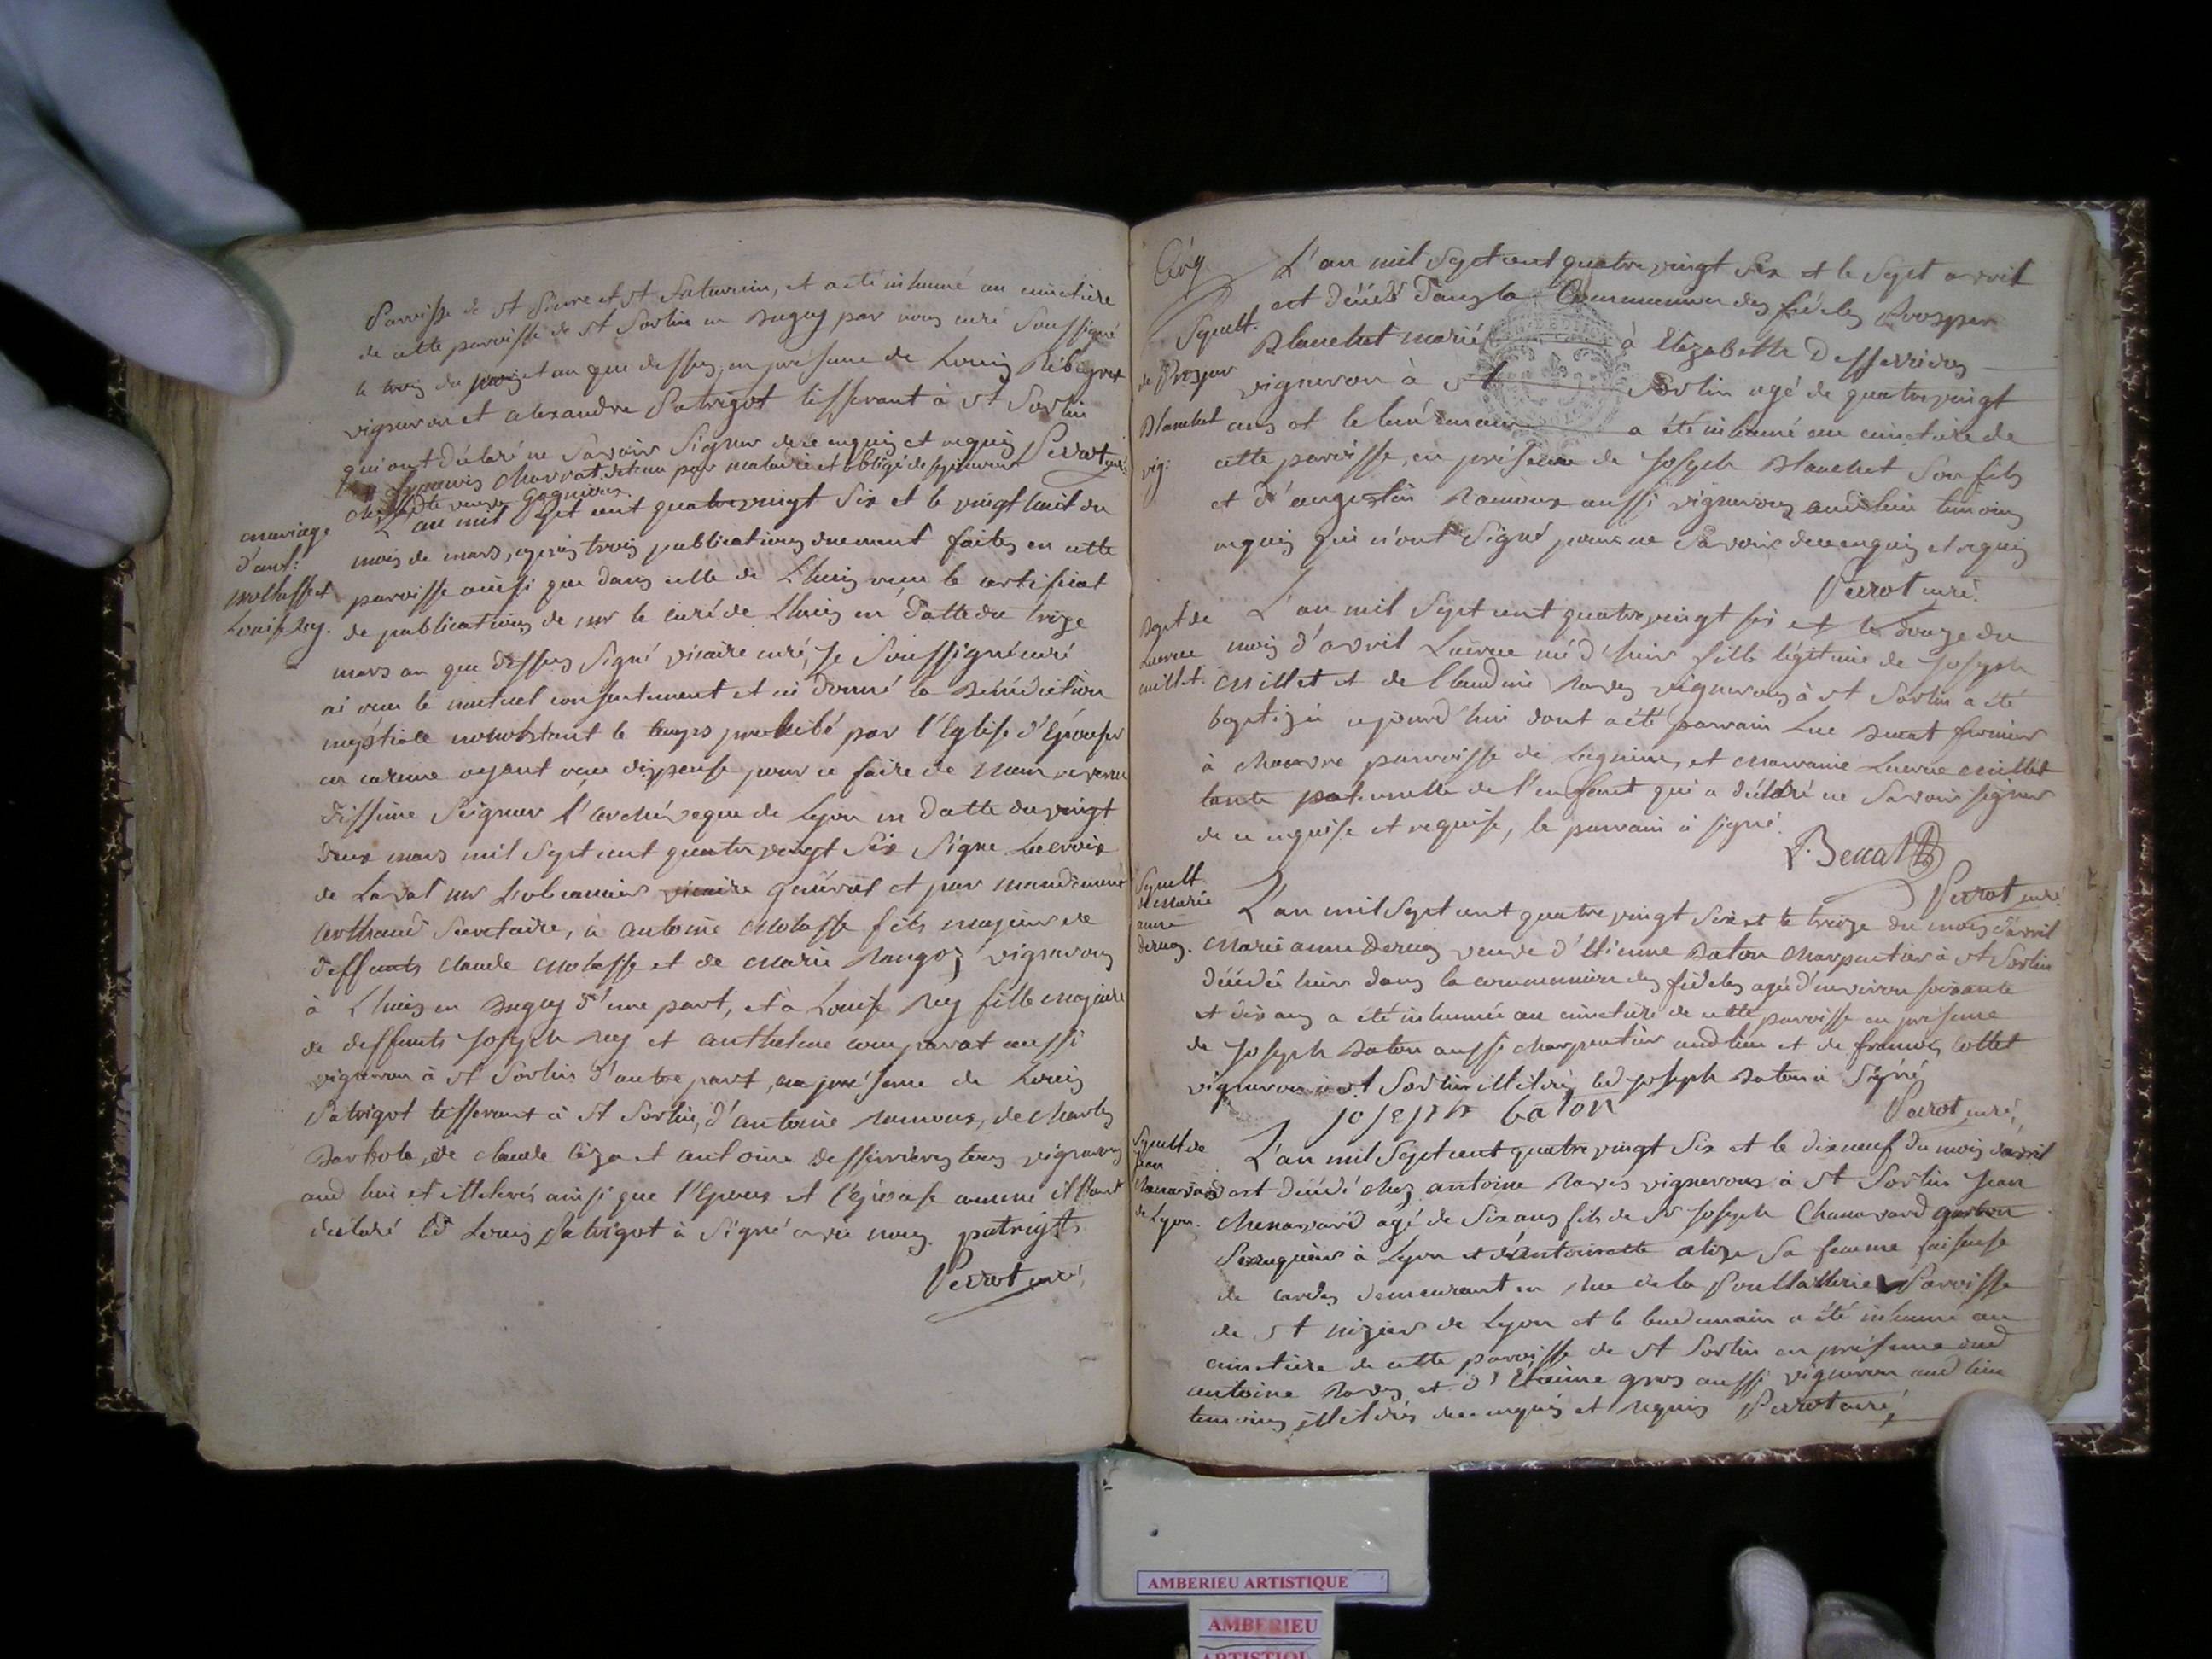 Parroisse de st Pierre et st Saturnin, et a été inhumé au cimetière
de cette parroisse de st Sorlin en Bugey par nous curé Soussigné
le trois du mois et an que dessus, en présence de Louis Ribeyret
vigneron et alexandre Patrigot tisserant à st Sorlin
qui ont déclaré ne Savoir Signer de ce enquis et requis Perrot curé
françois Charrat détenu par maladie et obligé de séjourner
chez ladte veuve Gagneur.
mariage
d'ant:
mollasse et
Louise Rey.
L'an mil Sept cent quatrevingt Six et le vingt huit du
mois de mars, après trois publications duement faites en cette
parroisse ainsi que dans celle de Lhuis vu le certificat
de publications de mr le curé de Lhuis en datte du treize
mars an que dessus Signé vicaire curé, Je Soussigné curé
ai reçu le mutuel consentement et ai donné la Bénédiction
nuptiale nonobstant le temps prohibé par l'Eglise d'Epouser
en careme ayant vu dispense pour ce faire de Mon reveren
dissime Seigneur l'archéveque de Lyon en datte du vingt
deux mars mil Sept cent quatre vingt Six Signe Lacroix
de Laval mr L'obeancier vicaire général et par mandement
Secretaire, à antoine Molasse fils majeur de
deffunts Claude Molasse et de Marie vignerons
à Lhuis en Bugey d'une part, et à Louise Rey fille majeure
de deffunts Joseph Rey et anthelme comparat aussi
vigneron à st Sorlin d'autre part, en présence de Louis
Patrigot tisserant à st Sorlin, d'antoine Ramoux, de Charles
de claude et antoine desferrieres tous vignerons
aud lieu et illeterés ainsi que l'Epoux et l'épouse comme ils l'ont
déclaré led Louis Patrigot à Signé avec nous. patrigt
Perrot curé
Sepult.
de Prosper
Blanchet
vig:
L'an mil Sept cent quatre vingt Six et le Sept avril
est décédé dans la Communion des fidèles Prosper
Blanchet marié à Elizabeth Desferrieres
vigneron à st Sorlin agé de quatrevingt
ans et le lendemain a été inhumé au cimetiere de
cette parroisse, en présence de Joseph Blanchet Son fils
et d'augustin Ramoux aussi vignerons audit lieu temoins
requis qui n'ont Signé pour ne Savoir de ce enquis et requis
Perrot curé.
Bapt de
Lucrece
millet.
L'an mil Sept cent quatrevingt six et le douze du
mois d'avril Lucrece né d'hier fille légitime de Joseph
Millet et de Claudine Raves vignerons à st Sorlin a été
baptizée aujourd'hui dont a été parrain Luc fermier
à parroisse de Lagnieu, et marraine Lucrece Millet
tante paternelle de l'enfant qui a déclaré ne Savoir signer
de ce enquise et requise, le parrain à signé.
Perrot curé
Sepult
de Marie
anne
L'an mil Sept cent quatre vingt Six et le treize du mois d'avril
Marie anne veuve d'Etienne Baton Charpentier à st Sorlin
décédée hier dans la communion des fidèles agée d'environ soixante
et dix ans a été inhumée au cimetiere de cette parroisse en présence
de Joseph Baton aussi charpentier audlieu et de francois Collet
vigneron à st Sorlin illiterés led Joseph Baton à Signé
joseph baton
Perrot curé,
Sepult de
Jean
Chanavard
de Lyon.
L'an mil Sept cent quatre vingt Six et le dixneuf du mois d'avril
est décédé chez antoine Raves vigneron à st Sorlin Jean
Chanavard agé de Six ans fils de Sr Joseph Chanavard garçon
Perruquier à Lyon et d'Antoinette Sa femme faiseuse
de cardes demeurant en Rue de la Poullaillerie Parroisse
de st nizier de Lyon et le lendemain a été inhumé au
cimetiere de cette parroisse de st Sorlin en présence dud
antoine Raves et d'Etienne gros aussi vigneron aud lieu
temoins illiterés de ce enquis et requis Perrot curé
AMBERIEU ARTISTIQUE
AMBERIEU
ARTISTIQUE